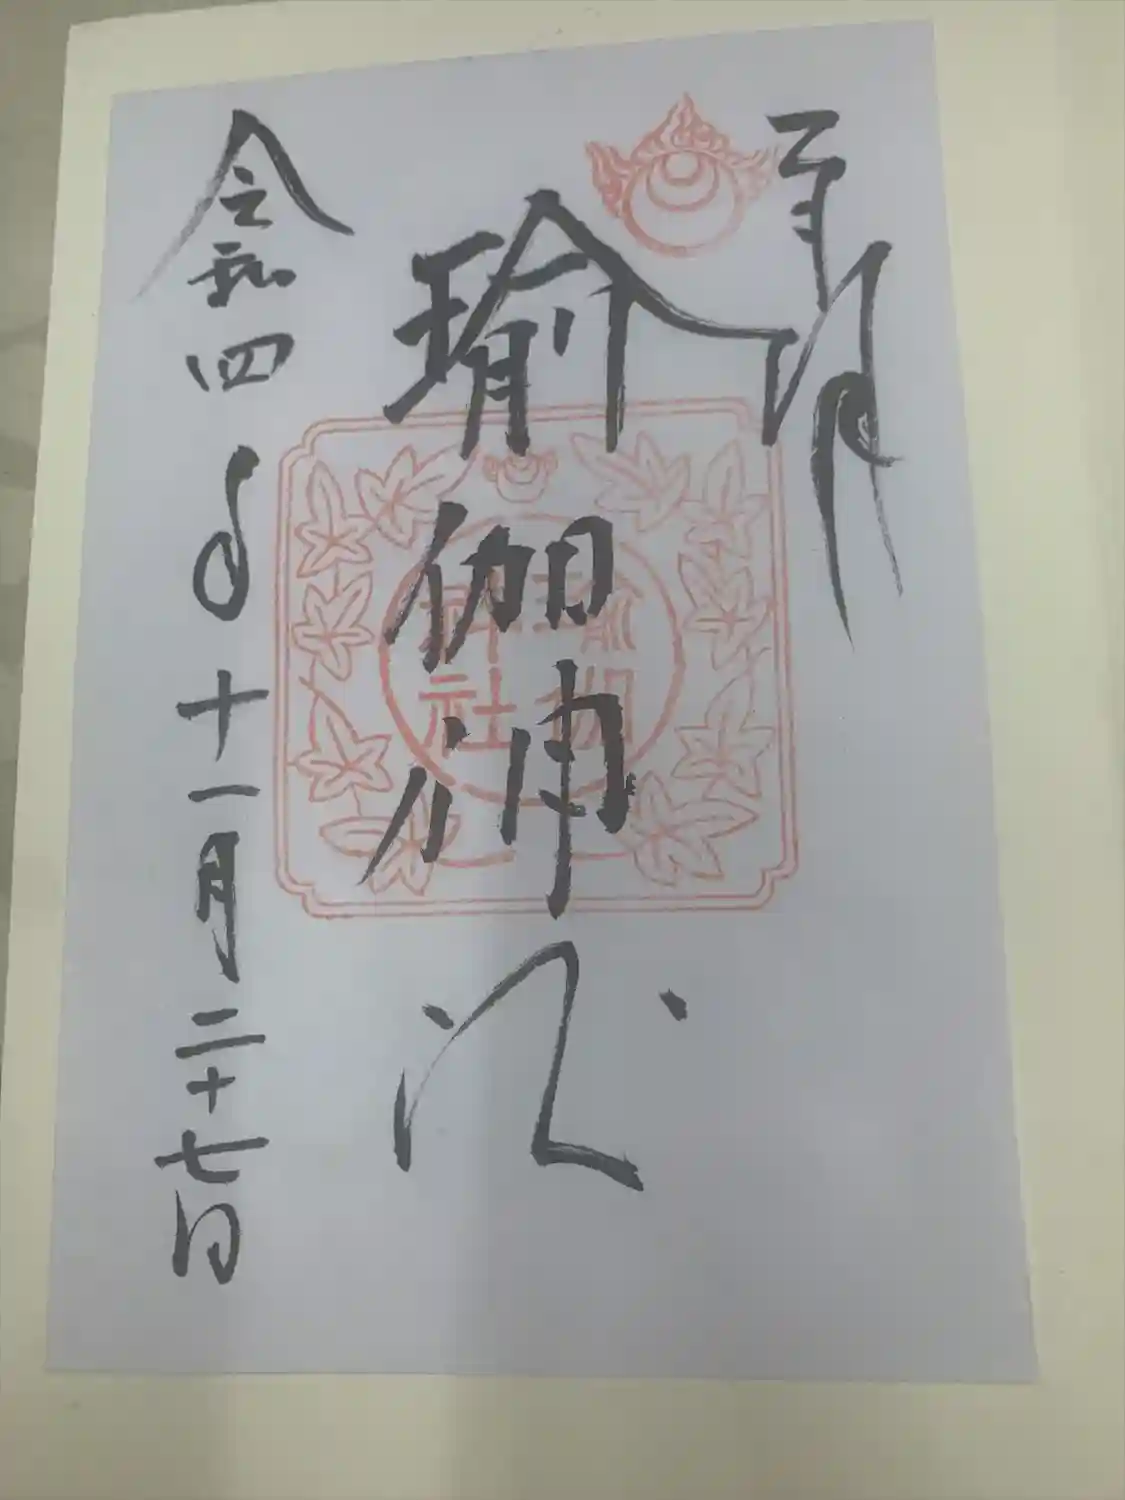 奉拝
瑜伽神社
令和四年十一月二十七日
瑜伽
神社